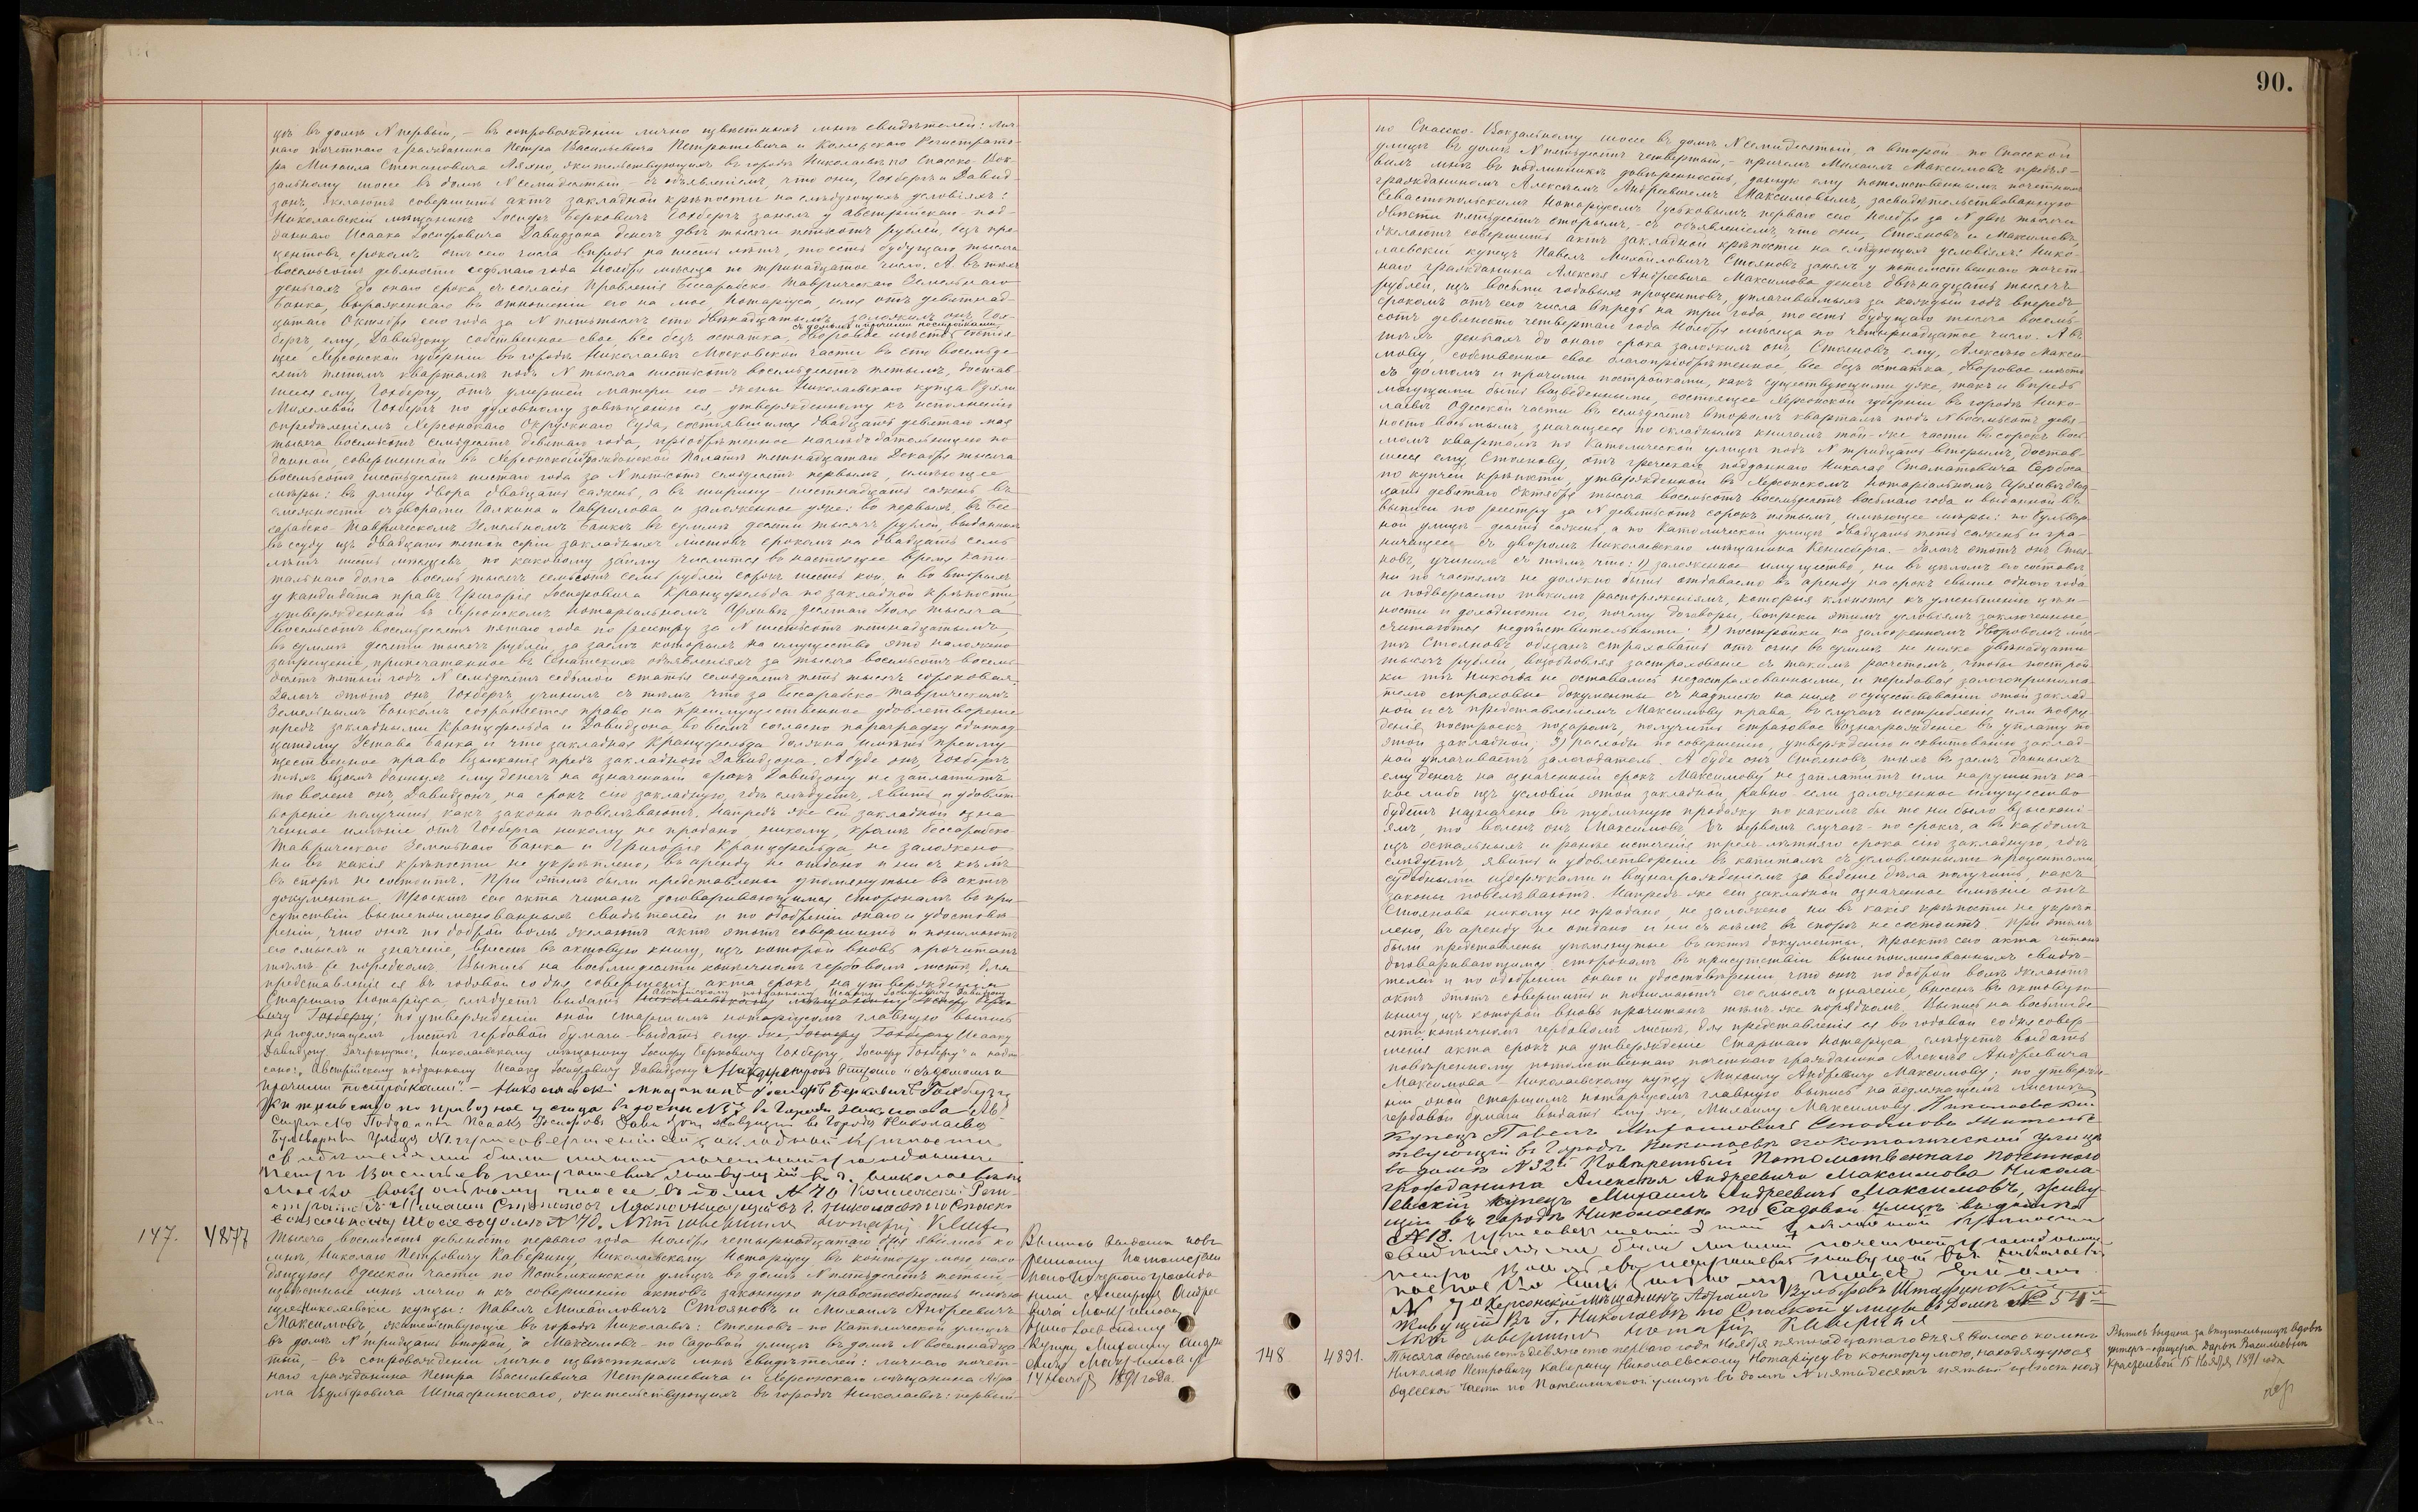 цѣ въ домѣ N первый, – въ сопровожденіи лично извѣстныхъ мнѣ свидѣтелей: лич-
наго почетнаго гражданина Петра Васильевича Петрашевича и Коллежскаго Регистрато-
ра Михаила Степановича Ляхно, жительствующихъ въ городѣ Николаевѣ по Спасско-Вок-
зальному шоссе въ домѣ N семидесятый – съ объявленіемъ, что они, Гохбергъ и Давид-
зонъ, желаютъ совершить актъ закладной крѣпости на слѣдующихъ условіяхъ:
Николаевскій мѣщанинъ Іосифъ Берковичъ Гохбергъ занялъ у австрійскаго под-
даннаго Исаака Іосифовича Давидзона денегъ двѣ тысячи пятьсотъ рублей, безъ про-
центовъ, срокомъ отъ сего числа впредь на шесть лѣтъ, то есть будущаго тысяча
восемьсотъ девяносто седьмаго года Ноября мѣсяца по тринадцатое число. А въ тѣхъ
деньгахъ до онаго срока, съ согласія Правленія Бессарабско-Таврическаго Земельнаго
Банка, выраженнаго въ отношеніи его на мое, Нотаріуса, имя отъ девятнад-
цатаго Октября сего года за N пятьтысячъ сто двѣнадцатымъ, заложилъ онъ, Гох-
съ домомъ и прочими постройками,
бергъ, ему, Давидзону собственное свое, все безъ остатка, дворовое мѣсто, состоя-
щее Херсонской губерніи въ городѣ Николаевѣ Московской части въ сто восемьде-
сятъ пятомъ кварталѣ подъ N тысяча шестьсотъ восемьдесятъ пятымъ, достав-
шееся ему, Гохбергу, отъ умершей матери его – жены Николаевскаго купца
Михелевой Гохбергъ по духовному завѣщанію ея, утвержденному къ исполненію
опредѣленіемъ Херсонскаго Окружнаго Суда, состоявшимся двадцать девятаго мая
тысяча восемьсотъ семьдесятъ девятаго года, пріобрѣтенное наслѣдодательницею по
данной, совершенной въ Херсонской Гражданской Палатѣ пятнадцатаго Декабря тысяча
восемьсотъ шестьдесятъ шестаго года за N пятьсотъ семьдесятъ первымъ, имѣющее
мѣры: въ длину двора двадцать саженъ, а въ ширину – шестнадцать саженъ въ
смежности съ дворами Галкина и Гаврилова, и заложенное уже: во первыхъ, въ Бес-
сарабско-Таврическомъ Земельномъ Банкѣ въ суммѣ десяти тысячъ рублей, выданныхъ
въ ссуду изъ двадцать пятой серіи закладныхъ листовъ срокомъ на двадцать семь
лѣтъ шесть мѣсяцевъ, по каковому займу числится въ настоящее время капи-
тальнаго долга восемь тысячъ семьсотъ семь рублей сорокъ шесть коп. и во вторыхъ,
у кандидата правъ Григорія Іосифовича Кранцфельда по закладной крѣпости,
утвержденной въ Херсонскомъ Нотаріальномъ Архивѣ десятаго Іюля тысяча
восемьсотъ восемьдесятъ пятаго года по реестру за N шестьсотъ пятнадцатымъ,
въ суммѣ десяти тысячъ рублей, за заемъ которыхъ на имущество это наложено
запрещеніе, припечатанное въ Сенатскихъ объявленіяхъ за тысяча восемьсотъ восемь-
десятъ пятый годъ N семьдесятъ седьмой статья семьдесятъ пять тысячъ сороковая.
Залогъ этотъ онъ Гохбергъ учинилъ съ тѣмъ, что за Бессарабско-Таврическимъ
Земельнымъ Банкомъ сохраняется право на преимущественное удовлетвореніе
предъ закладными Кранцфельда и Давидзона во всемъ согласно параграфу одиннад-
цатому Устава Банка и что закладная Кранцфельда должна имѣть преиму-
щественное право взысканія предъ закладною Давидзона. А буде онъ, Гохбергъ
тѣхъ взаемъ данныхъ ему денегъ на означенный срокъ Давидзону не заплатитъ
то воленъ онъ, Давидзонъ, на срокъ сію закладную, гдѣ слѣдуетъ, явить и удовлет-
вореніе получить, какъ законы повелѣваютъ. Напредь же сей закладной озна-
ченное имѣніе отъ Гохберга никому не продано, никому, кромѣ Бессарабско-
Таврическаго Земельнаго Банка и Григорія Кранцфельда, не заложено
ни въ какія крѣпости не укрѣплено, въ аренду не отдано и ни съ кѣмъ
въ спорѣ не состоитъ. При этомъ были представлены упомянутые въ актѣ
документы. Проектъ сего акта читанъ договаривающимся сторонамъ въ при-
сутствіи вышепоименованныхъ свидѣтелей и по одобреніи онаго и удостовѣ-
реніи, что они по доброй волѣ желаютъ актъ этотъ совершить и понимаютъ
его смыслъ и значеніе, внесенъ въ актовую книгу, изъ которой вновь прочитанъ
тѣмъ же порядкомъ. Выпись на восьмидесяти копѣечномъ гербовомъ листѣ, для
представленія ея въ годовой со дня совершенія акта срокъ на утвержденіе
Австрійскому подданному Исааку Іосифовичу Давидзону
Старшаго Нотаріуса, слѣдуетъ выдать Николаевскому мѣщанину Іосифу Берко-
вичу Гохбергу; по утвержденіи оной Старшимъ Нотаріусомъ главную выпись
на подлежащемъ листѣ гербовой бумаги выдать ему же, Іосифу Гохбергу Исааку
Давидзону. Зачеркнуто: „Николаевскому мѣщанину Іосифу Берковичу Гохбергу, Іосифу Гохбергу" и надпи-
сано: „Австрійскому подданному Исааку Іосифовичу Давидзону" „съ домомъ и
прочими постройками". – Николаевскій мѣщанинъ Іосифъ Берковичъ Гохбергъ
N 3й въ Городѣ Николаевѣ Ав-
стрійско Подданный Исаакъ Іосифовъ Давидзонъ живущій въ Городѣ Николаевѣ
Бульварной Улицѣ N1. при совершеніи сей закладной крѣпости
свидѣтелями были личный почетный гражданинъ
Петръ Васильевъ Петрашевичъ живущій въ г. Николаевѣ по
Спасско Вокзальному шоссе въ домѣ N 70 Коллежскій Реги-
страторъ Михаилъ Степановъ Ляхно живущій въ г. Николаевѣ по Спасско
Вокзальному Шоссе въ домѣ N 70. Актъ совершилъ Нотаріусъ
147. 4877 Тысяча восемьсотъ девяносто перваго года Ноября четырнадцатаго дня явились ко
мнѣ, Николаю Петровичу Каверину, Николаевскому Нотаріусу въ контору мою нахо-
дящуюся Одесской части по Потемкинской улицѣ въ домѣ N пятьдесятъ пятый,
извѣстные мнѣ лично и къ совершенію актовъ законную правоспособность имѣю-
щіе Николаевскіе купцы: Павелъ Михайловичъ Стояновъ и Михаилъ Андреевичъ
Максимовъ, жительствующіе въ городѣ Николаевѣ: Стояновъ – по Католической улицѣ
въ домѣ N тридцать второй, а Максимовъ – по Садовой улицѣ въ домѣ N восемнадца-
тый, – въ сопровожденіи лично извѣстныхъ мнѣ свидѣтелей: личнаго почет-
наго гражданина Петра Васильевича Петрашевича и Херсонскаго мѣщанина Абра-
ма Вульфовича Штафинскаго, жительствующихъ въ городѣ Николаевѣ: первый
Выпись выдана повѣ-
ренному Потомствен
наго Почетнаго гражда-
нина Алексея Андрее
вича Максимова
Николаевскому
Купцу Михаилу Андре
евичу Максимову
14 Ноября 1891 года.
90.
по Спасско-Вокзальному шоссе въ домѣ N семидесятый, а второй – по Спасской
улицѣ въ домѣ N пятьдесятъ четвертый, – причемъ Михаилъ Максимовъ предъя-
вилъ мнѣ въ подлинникѣ довѣренность, данную ему потомственнымъ почетнымъ
гражданиномъ Алексѣемъ Андреевичемъ Максимовымъ, засвидѣтельствованную
Севастопольскимъ Нотаріусомъ Гуськовымъ перваго сего Ноября за N двѣ тысячи
двѣсти пятьдесятъ вторымъ, – съ объявленіемъ, что они, Стояновъ и Максимовъ,
желаютъ совершить актъ закладной крѣпости на слѣдующихъ условіяхъ: Нико-
лаевскій купецъ Павелъ Михайловичъ Стояновъ занялъ у потомственнаго почет-
наго гражданина Алексѣя Андреевича Максимова денегъ двѣнадцать тысячъ
рублей, изъ восьми годовыхъ процентовъ, уплачиваемыхъ за каждый годъ впередъ,
срокомъ отъ сего числа впредь на три года, то есть будущаго тысяча восемь-
сотъ девяносто четвертаго года Ноября мѣсяца по четырнадцатое число. А въ
тѣхъ деньгахъ до онаго срока заложилъ онъ, Стояновъ, ему, Алексѣю Макси-
мову, собственное свое благопріобрѣтенное, все безъ остатка, дворовое мѣсто
съ домомъ и прочими постройками, какъ существующими уже, такъ и впредь
могущими быть возведенными, состоящее Херсонской губерніи въ городѣ Нико-
лаевѣ Одесской части въ семьдесятъ второмъ кварталѣ подъ N восемьсотъ девя-
носто восьмымъ, значащееся по окладнымъ книгамъ той-же части въ сорокъ вось-
момъ кварталѣ по Католической улицѣ подъ N тридцать вторымъ, достав-
шееся ему, Стоянову, отъ греческаго подданнаго Николая Стаматовича Сербоса
по купчей крѣпости, утвержденной въ Херсонскомъ Нотаріальномъ Архивѣ двад-
цать девятаго Октября тысяча восемьсотъ восемьдесятъ восьмаго года и выданной въ
выписи по реестру за N девятьсотъ сорокъ пятымъ, имѣющее мѣры: по Бульвар-
ной улицѣ – десять саженъ, а по Католической улицѣ двадцать пять саженъ и гра-
ничащее съ дворомъ Николаевскаго мѣщанина Кенигсберга. – Залогъ этотъ онъ Стоя-
новъ, учинилъ съ тѣмъ, что: 1) заложенное имущество, ни въ цѣломъ его составѣ
ни по частямъ не должно быть отдаваемо въ аренду на срокъ свыше одного года
и подвергаемо такимъ распоряженіямъ, которыя клонятся къ уменьшенію цѣн-
ности и доходности его, почему договоры, вопреки этимъ условіямъ заключенные,
считаются недѣйствительными; 2) постройки на заложенномъ дворовомъ мѣс-
тѣ Стояновъ обязанъ страховать отъ огня въ суммѣ не ниже двѣнадцати
тысячъ рублей, возобновляя застрахованіе съ такимъ расчетомъ, чтобы построй-
ки тѣ никогда не оставались незастрахованными, и передавая залогопринима-
телю страховые документы съ надписью на нихъ о существованіи этой заклад-
ной и съ представленіемъ Максимову права, въ случаѣ истребленія или повреж-
денія построекъ пожаромъ, получить страховое вознагражденіе въ уплату по
этой закладной; 3) расходы по совершенію, утвержденію и сквитованію заклад-
ной уплачиваетъ залогодатель. А буде онъ, Стояновъ, тѣхъ въ заемъ данныхъ
ему денегъ на означенный срокъ Максимову не заплатитъ или нарушитъ ка-
кое либо изъ условій этой закладной, равно если заложенное имущество
будетъ назначено въ публичную продажу по какимъ бы то ни было взыскані-
ямъ, то воленъ онъ, Максимовъ, въ первомъ случаѣ – по срокѣ, а въ каждомъ
изъ остальныхъ и ранѣе истеченія трехъ-лѣтняго срока сію закладную, гдѣ
слѣдуетъ явить и удовлетвореніе въ капиталѣ съ условленными процентами,
судебными издержками и вознагражденіемъ за веденіе дѣла получить, какъ
законы повелѣваютъ. Напредь же сей закладной означенное имѣніе отъ
Стоянова никому не продано, не заложено, ни въ какія крѣпости не укрѣп-
лено, въ аренду не отдано и ни съ кѣмъ въ спорѣ не состоитъ. При этомъ
были представлены упомянутые въ актѣ документы. Проектъ сего акта читанъ
договаривающимся сторонамъ въ присутствіи вышепоименованныхъ свидѣ-
телей и по одобреніи онаго и удостовѣреніи что они по доброй волѣ желаютъ
актъ этотъ совершить и понимаютъ его смыслъ и значеніе, внесенъ въ актовую
книгу, изъ которой вновь прочитанъ тѣмъ-же порядкомъ. Выпись на восьмиде-
сяти копѣечномъ гербовомъ листѣ, для представленія ея въ годовой со дня совер-
шенія акта срокъ на утвержденіе Старшаго Нотаріуса, слѣдуетъ выдать
повѣренному потомственнаго почетнаго гражданина Алексѣя Андреевича
Максимова – Николаевскому купцу Михаилу Андреевичу Максимову; по утвержде-
ніи оной Старшимъ Нотаріусомъ главную выпись на подлежащемъ листѣ
гербовой бумаги выдать ему же, Михаилу Максимову. Николаевскій
Купецъ Павелъ Михаиловичъ Стояновъ Житель-
твующій въ Городѣ Николаевѣ по Католической улицѣ
въ домѣ N 32й Повѣренный Потомственнаго Почетнаго
гражданина Алексѣя Андреевича Максимова Никола-
евскій купецъ Михаилъ Андреевичъ Максимовъ, живу-
щій въ городѣ Николаевѣ по Садовой улицѣ въ домѣ
N 18. При совершеніи этой закладной крѣпости
свидѣтелями были личный почетный гражданинъ
Петръ Васильевъ Петрашевичъ живущій въ г. Николаевѣ
по Спасско Вокзальному шоссе въ домѣ
N 70 Херсонскій Мѣщанинъ Абрамъ Вульфовъ Штафинскій
Живущій въ Г. Николаевѣ по Спасской улицѣ въ Домѣ № 54й
Актъ совершилъ Нотаріусъ Каверинъ
148 4891. Тысяча восемьсотъ девяносто перваго года Ноября пятнадцатаго дня явилась ко мнѣ
Николаю Петровичу Каверину Николаевскому Нотаріусу въ контору мою, находящуюся
Одесской части по Потемкинской улицѣ въ домѣ N пятьдесятъ пятый извѣстная
Выпись выдана вдовѣ
унтеръ-офицера Дарьѣ Васильевнѣ
15 Ноября 1891 года